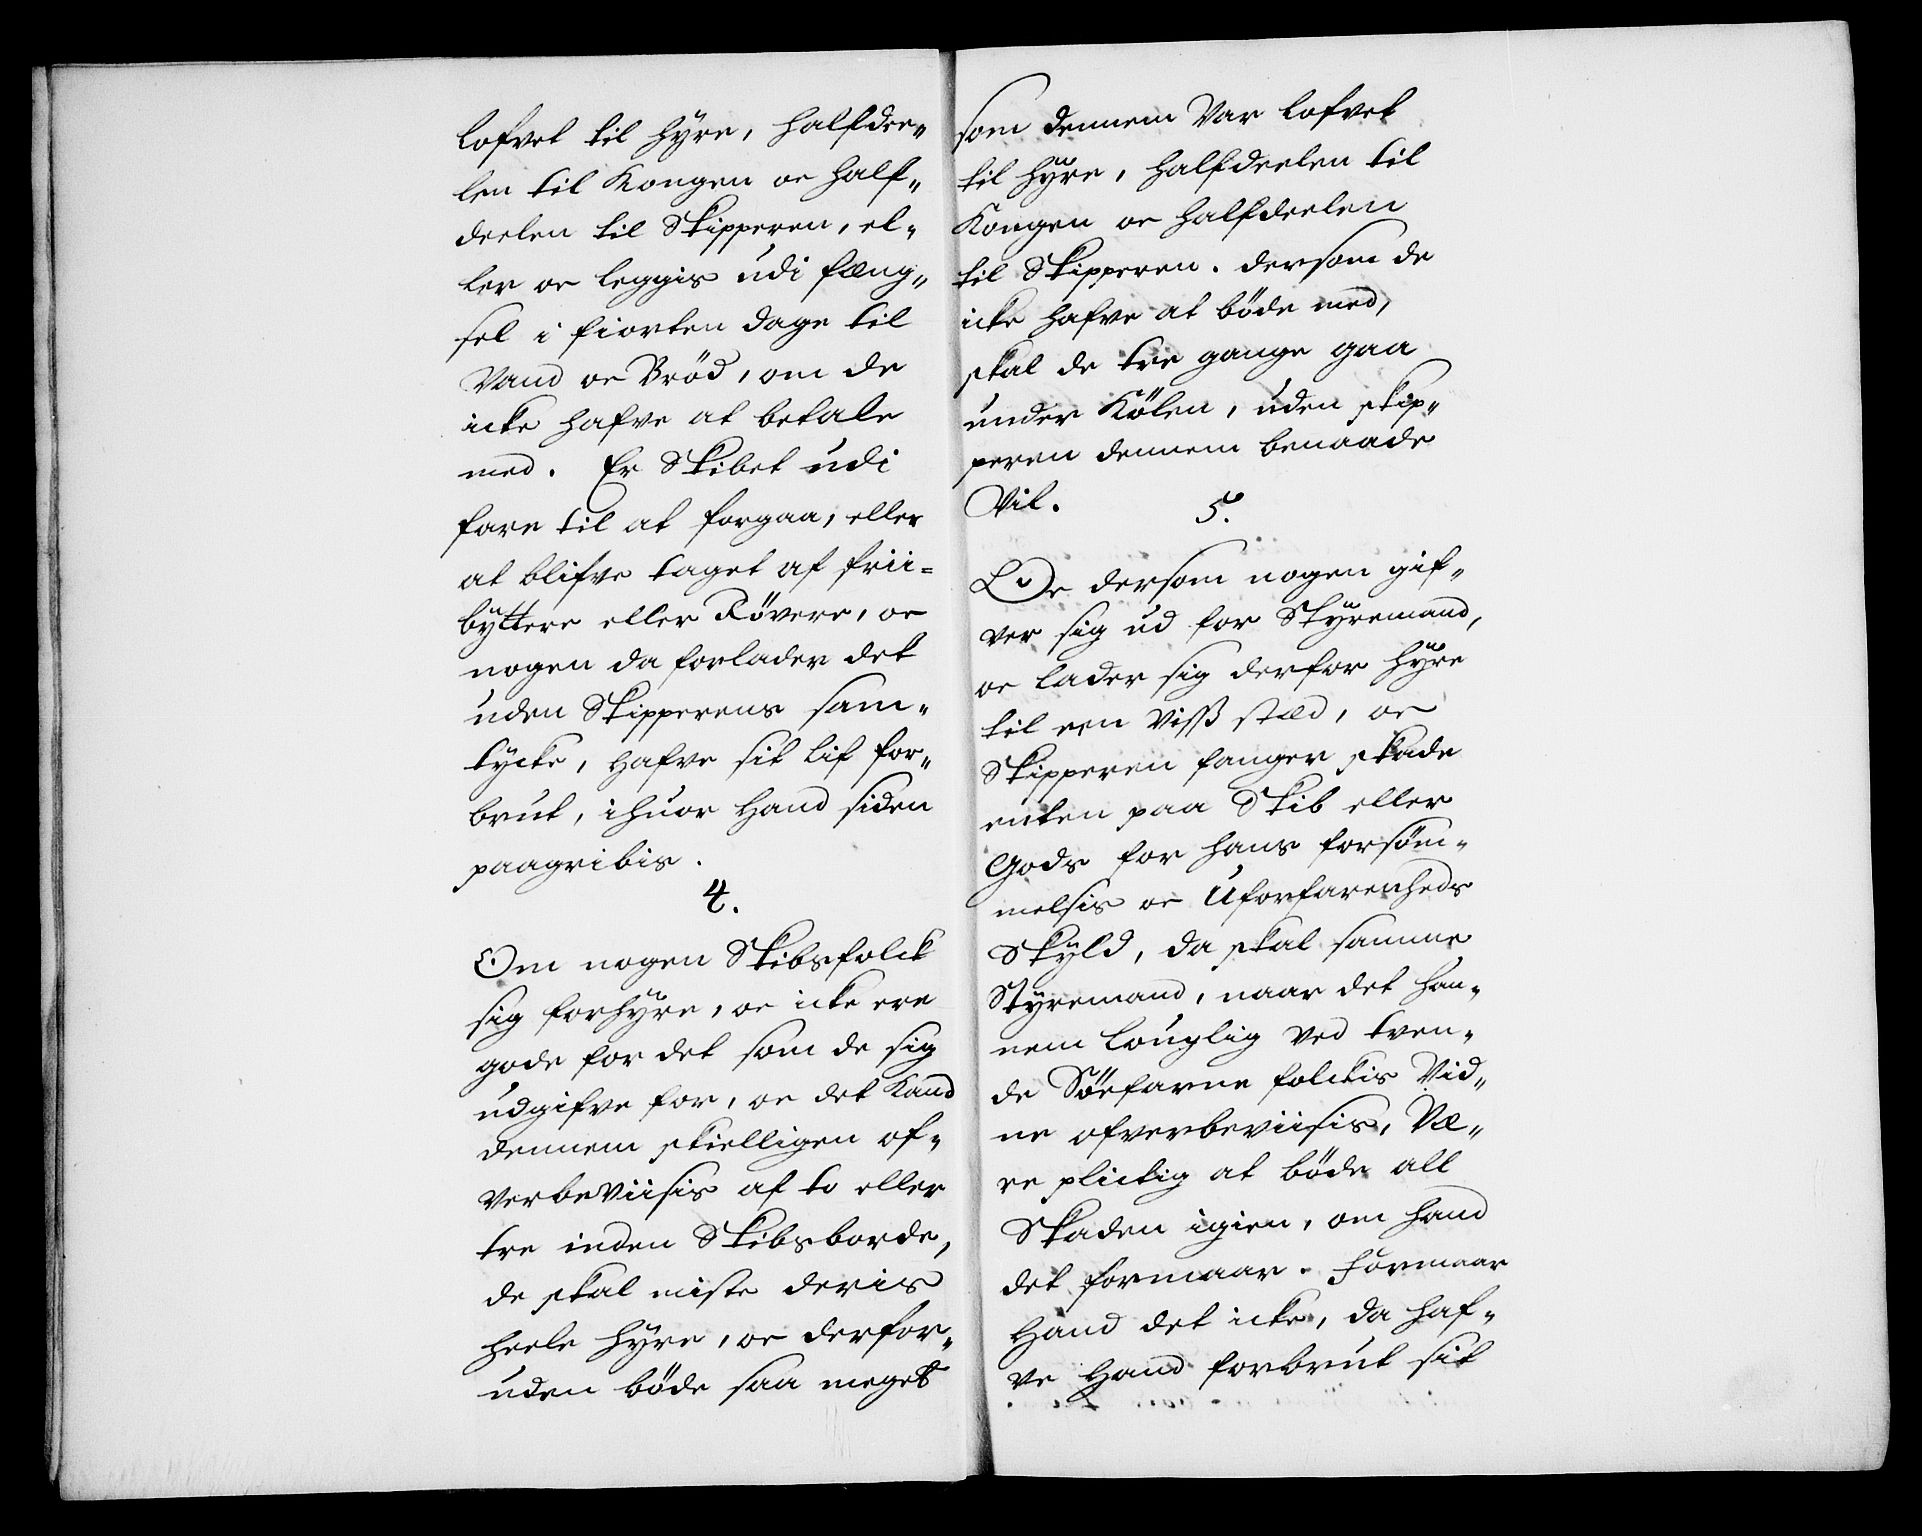 lofvet til hyre, halfdee„
len til Kongen oc half„
deelen til Skipperen, el„
ler oc leggis udi fæng„
sel i fiorten dage til
Vand oc Brød, om de
icke hafve at betale
med. Er Skibet udi
fare til at forgaa, eller
at blifve taget af frii=
byttere eller Røvere, oc
nogen da forlader det
uden Skipperens sam„
tycke, hafve sit lif for„
brut, ihuor hand siden
paagribis.
4.
Om nogen Skibsfolck
sig forhyre, oc icke ere
gode for det som de sig
udgifve for, oc det kand
dennem skielligen of„
verbeviisis af to eller
tre inden Skibsborde,
de skal miste deris
heele hyre, oc derfor„
uden bøde saa meget
som dennem var lofvet
til hyre, halfdeelen til
Kongen oc halfdeelen
til Skipperen. dersom de
icke hafve at bøde med,
skal de tre gange gaa
under Kølen, uden skip„
peren dennem benaade
Vil.
5.
Oc dersom nogen gif„
ver sig ud for Styremand,
oc lader sig derfor hyre
til een viss stæd, oc
Skipperen fanger skade
enten paa Skib eller
Gods for hans forsøm„
melsis oc Uforfarenheds
Skyld, da skal samme
Styremand, naar det han„
nem louglig ved tven„
de Søefarne folckis Vid„
ne ofverbeviisis, Væ„
re plictig at bøde all
Skaden igien, om hand
det formaar. Formaar
Hand det icke, da haf„
ve Hand forbrut sit